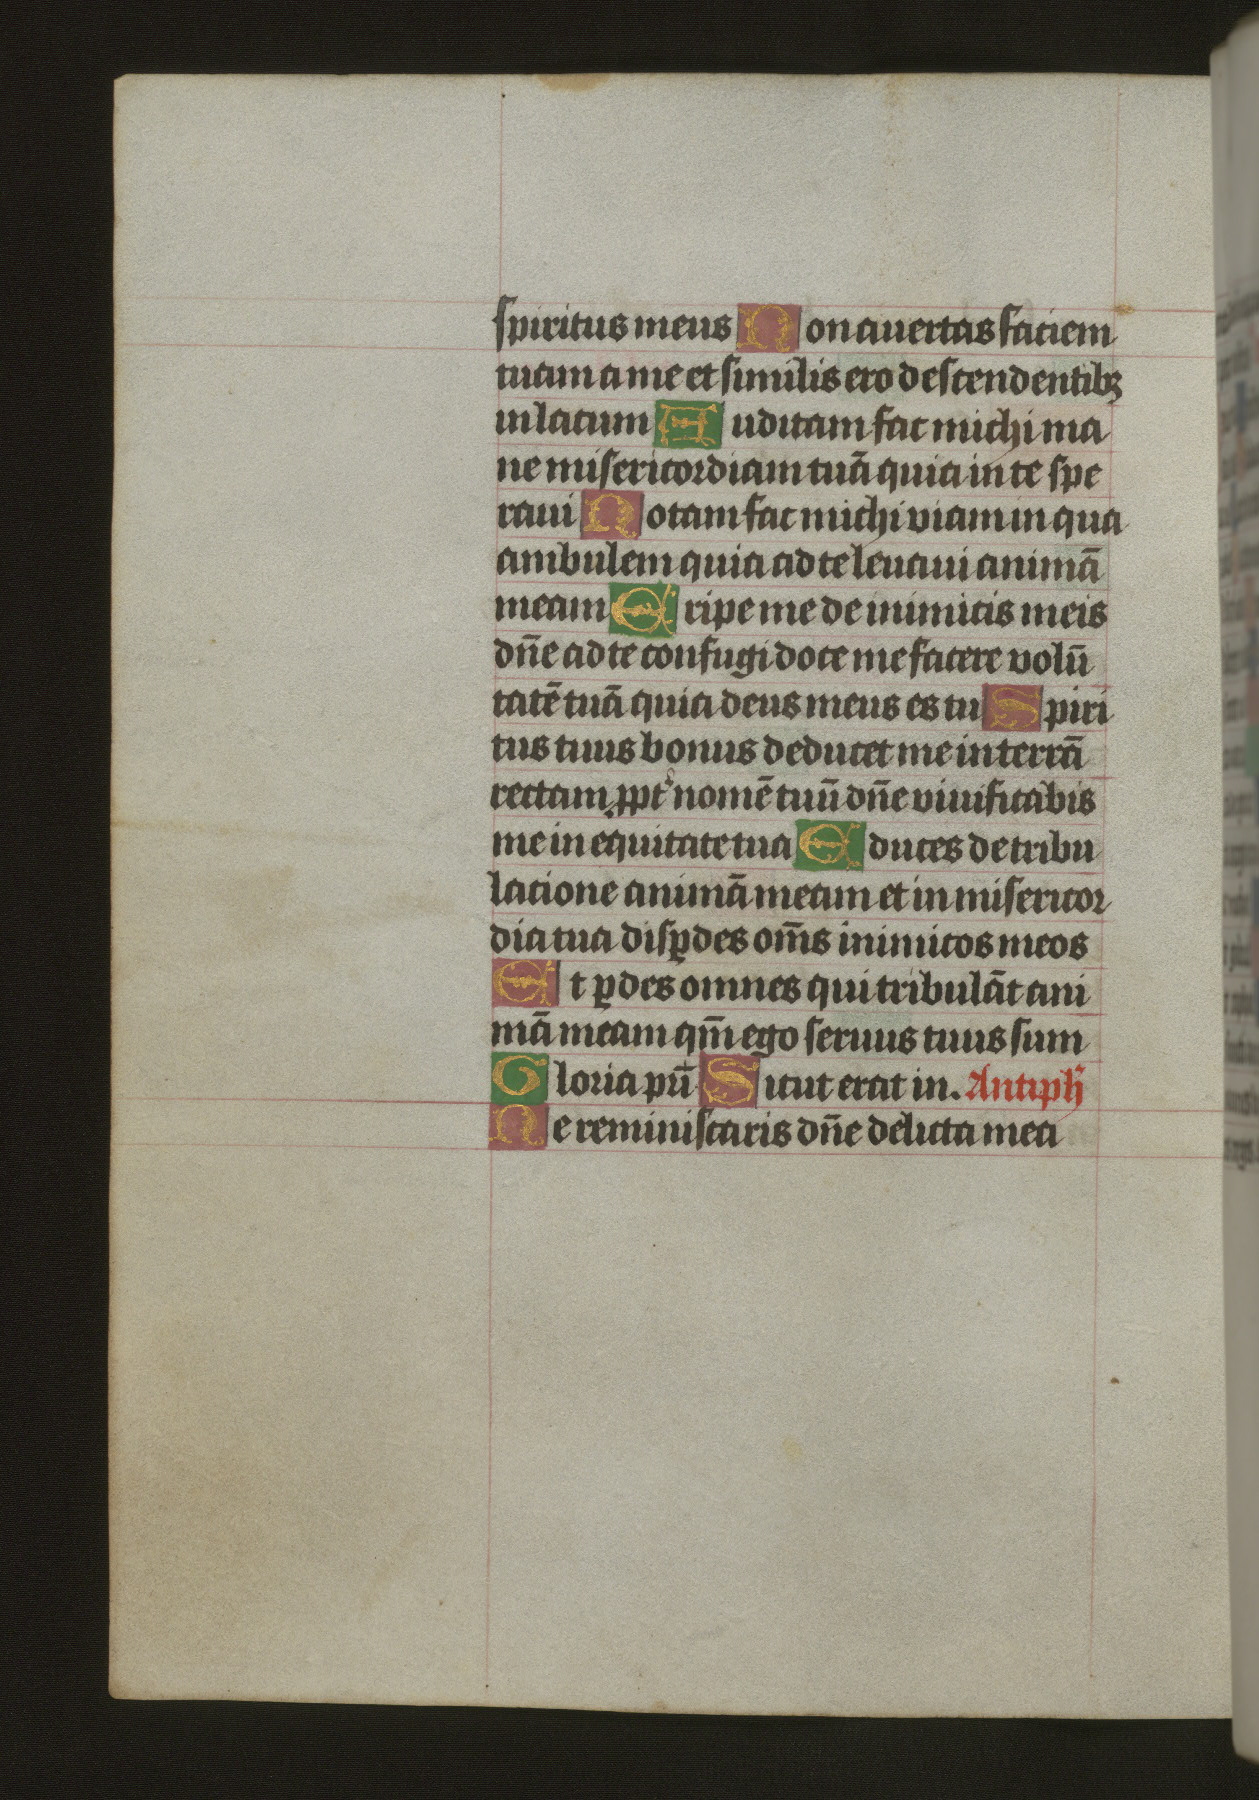 spiritus meus Non auertas faciem
tuam a me et similis ero descendentibꝫ
in lacum Auditam fac michi ma
ne misericordiam tuā quia in te spe
raui Notam fac michi viam in qua
ambulem quia ad te leuaui animā
meam Eripe me de inimicis meis
dn̄e ad te confugi doce me facere volū
tatē tuā quia deus meus es tu Spiri
tus tuus bonus deducet me in terrā
rectam ꝓpt̾ nomē tuū dn̄e viuificabis
me in equitate tua Educes de tribu
latione animā meam et in misericor
dia tua disꝑdes om̄s inimicos meos
Et ꝑdes omnes qui tribulāt ani
mā meam qm̄ ego seruus tuus sum
Gloria pr̄i Sicut erat in. Antiph̄
Ne reminiscaris dn̄e delicta mea